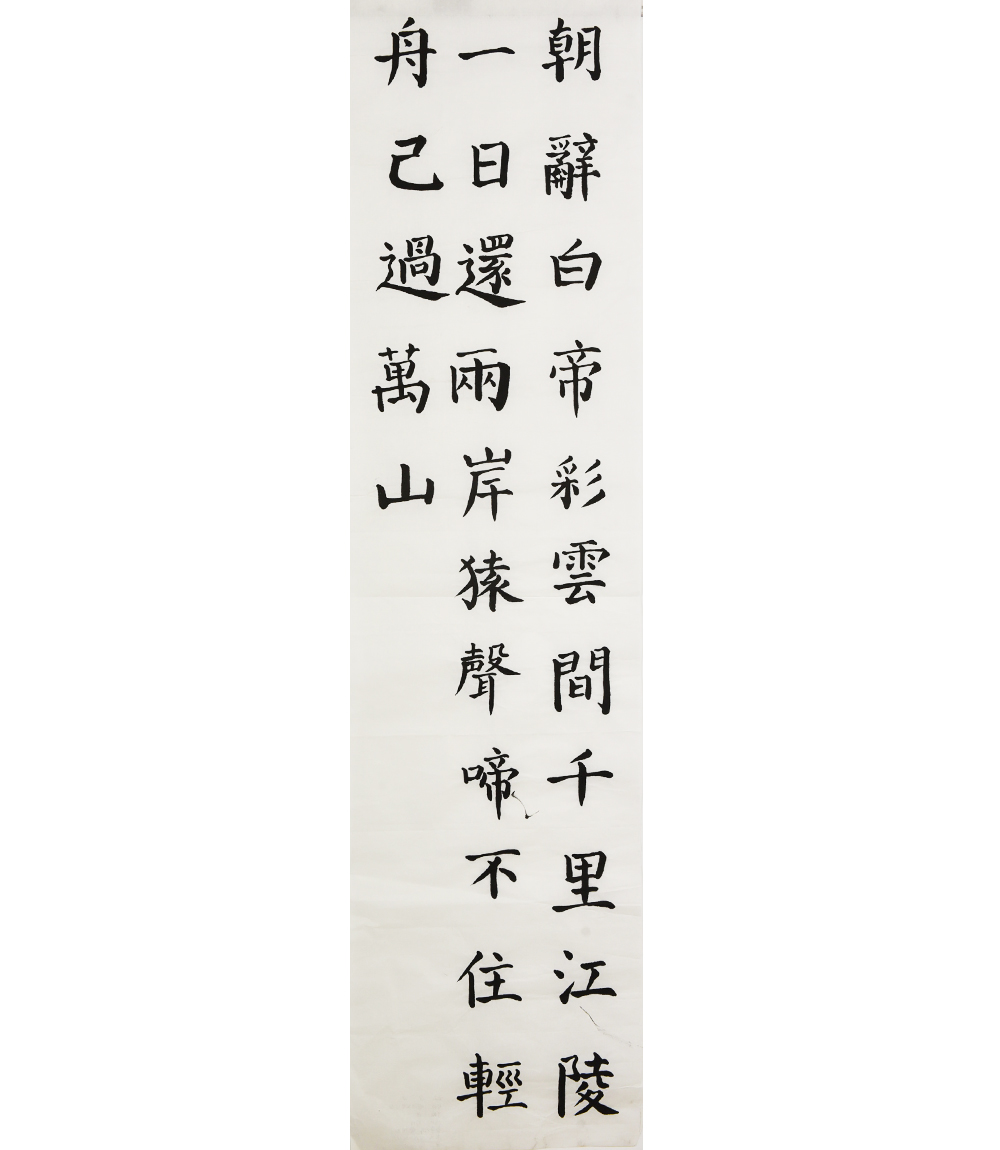 朝辭白帝彩雲間千里江陵
一日還兩岸猿聲啼不住輕
舟己過萬山